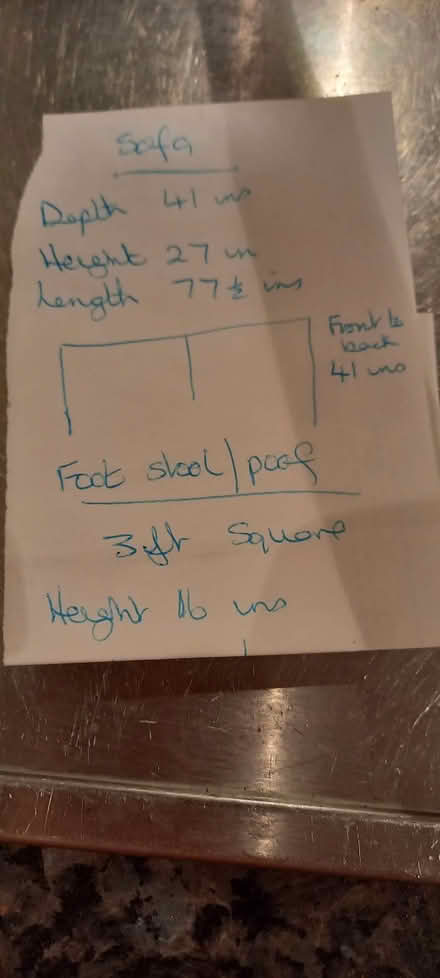 Sofa
Depth 41 ins
Height 27 in
Length 77½ ins
Front to
back
41 ins
Foot stool/poof
3ft Square
Height 16 ins